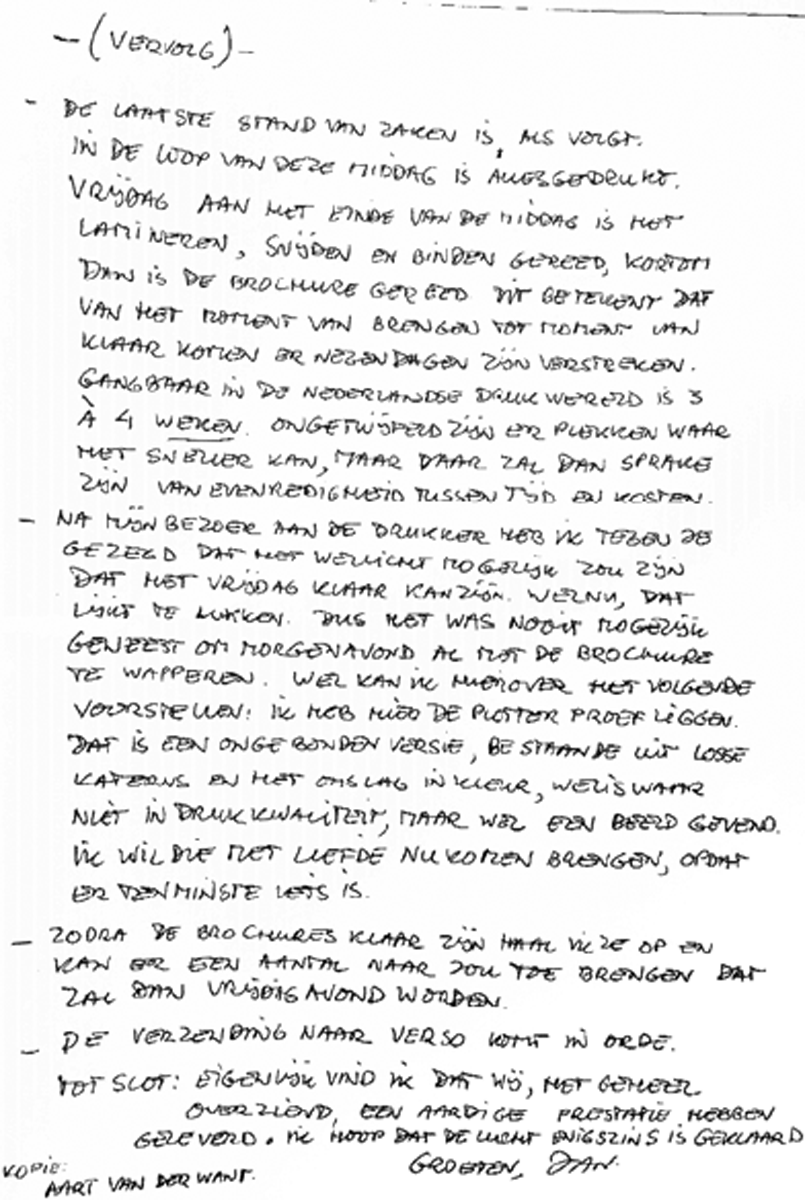 – (VERVOLG) –
- DE LAATSTE STAND VAN ZAKEN IS, ALS VOLGT.
IN DE LOOP VAN DEZE MIDDAG IS ALLES GEDRUKT.
VRIJDAG AAN HET EINDE VAN DE MIDDAG IS HET
LAMINEREN, SNIJDEN EN BINDEN GEREED, KORTOM
DAN IS DE BROCHURE GEREED. DIT BETEKENT DAT
VAN HET MOMENT VAN BRENGEN TOT MOMENT VAN
KLAAR KOMEN ER NEGEN DAGEN ZIJN VERSTREKEN.
GANGBAAR IN DE NEDERLANDSE DRUKWERELD IS 3
À 4 WEKEN. ONGETWIJFELD ZIJN ER PLEKKEN WAAR
HET SNELLER KAN, MAAR DAAR ZAL DAN SPRAKE
ZIJN VAN EVENREDIGHEID TUSSEN TIJD EN KOSTEN.
- NA MIJN BEZOEK AAN DE DRUKKER HEB IK TEGEN JE
GEZEGD DAT HET WELLICHT MOGELIJK ZOU ZIJN
DAT HET VRIJDAG KLAAR KAN ZIJN. WELNU, DAT
LIJKT TE LUKKEN. DUS HET WAS NOOIT MOGELIJK
GEWEEST OM MORGENAVOND AL MET DE BROCHURE
TE WAPPEREN. WEL KAN IK HIEROVER HET VOLGENDE
VOORSTELLEN: IK HEB HIER DE PLOTTER PROEF LIGGEN.
DAT IS EEN ONGEBONDEN VERSIE, BESTAANDE UIT LOSSE
KATERNS EN HET OMSLAG IN KLEUR, WELISWAAR
NIET IN DRUKKWALITEIT, MAAR WEL EEN BEELD GEVEND.
IK WIL DIE MET LIEFDE NU KOMEN BRENGEN, OPDAT
ER TENMINSTE IETS IS.
- ZODRA DE BROCHURES KLAAR ZIJN HAAL IK ZE OP EN
KAN ER EEN AANTAL NAAR JOU TOE BRENGEN DAT
ZAL DAN VRIJDAGAVOND WORDEN.
- DE VERZENDING NAAR VERSO KOMT IN ORDE.
TOT SLOT: EIGENLIJK VIND IK DAT WIJ, HET GEHEEL
OVERZIEND, EEN AARDIGE PRESTATIE HEBBEN
GELEVERD. IK HOOP DAT DE LUCHT ENIGSZINS IS GEKLAARD
GROETEN, JAN.
KOPIE:
AART VAN DER WANT.